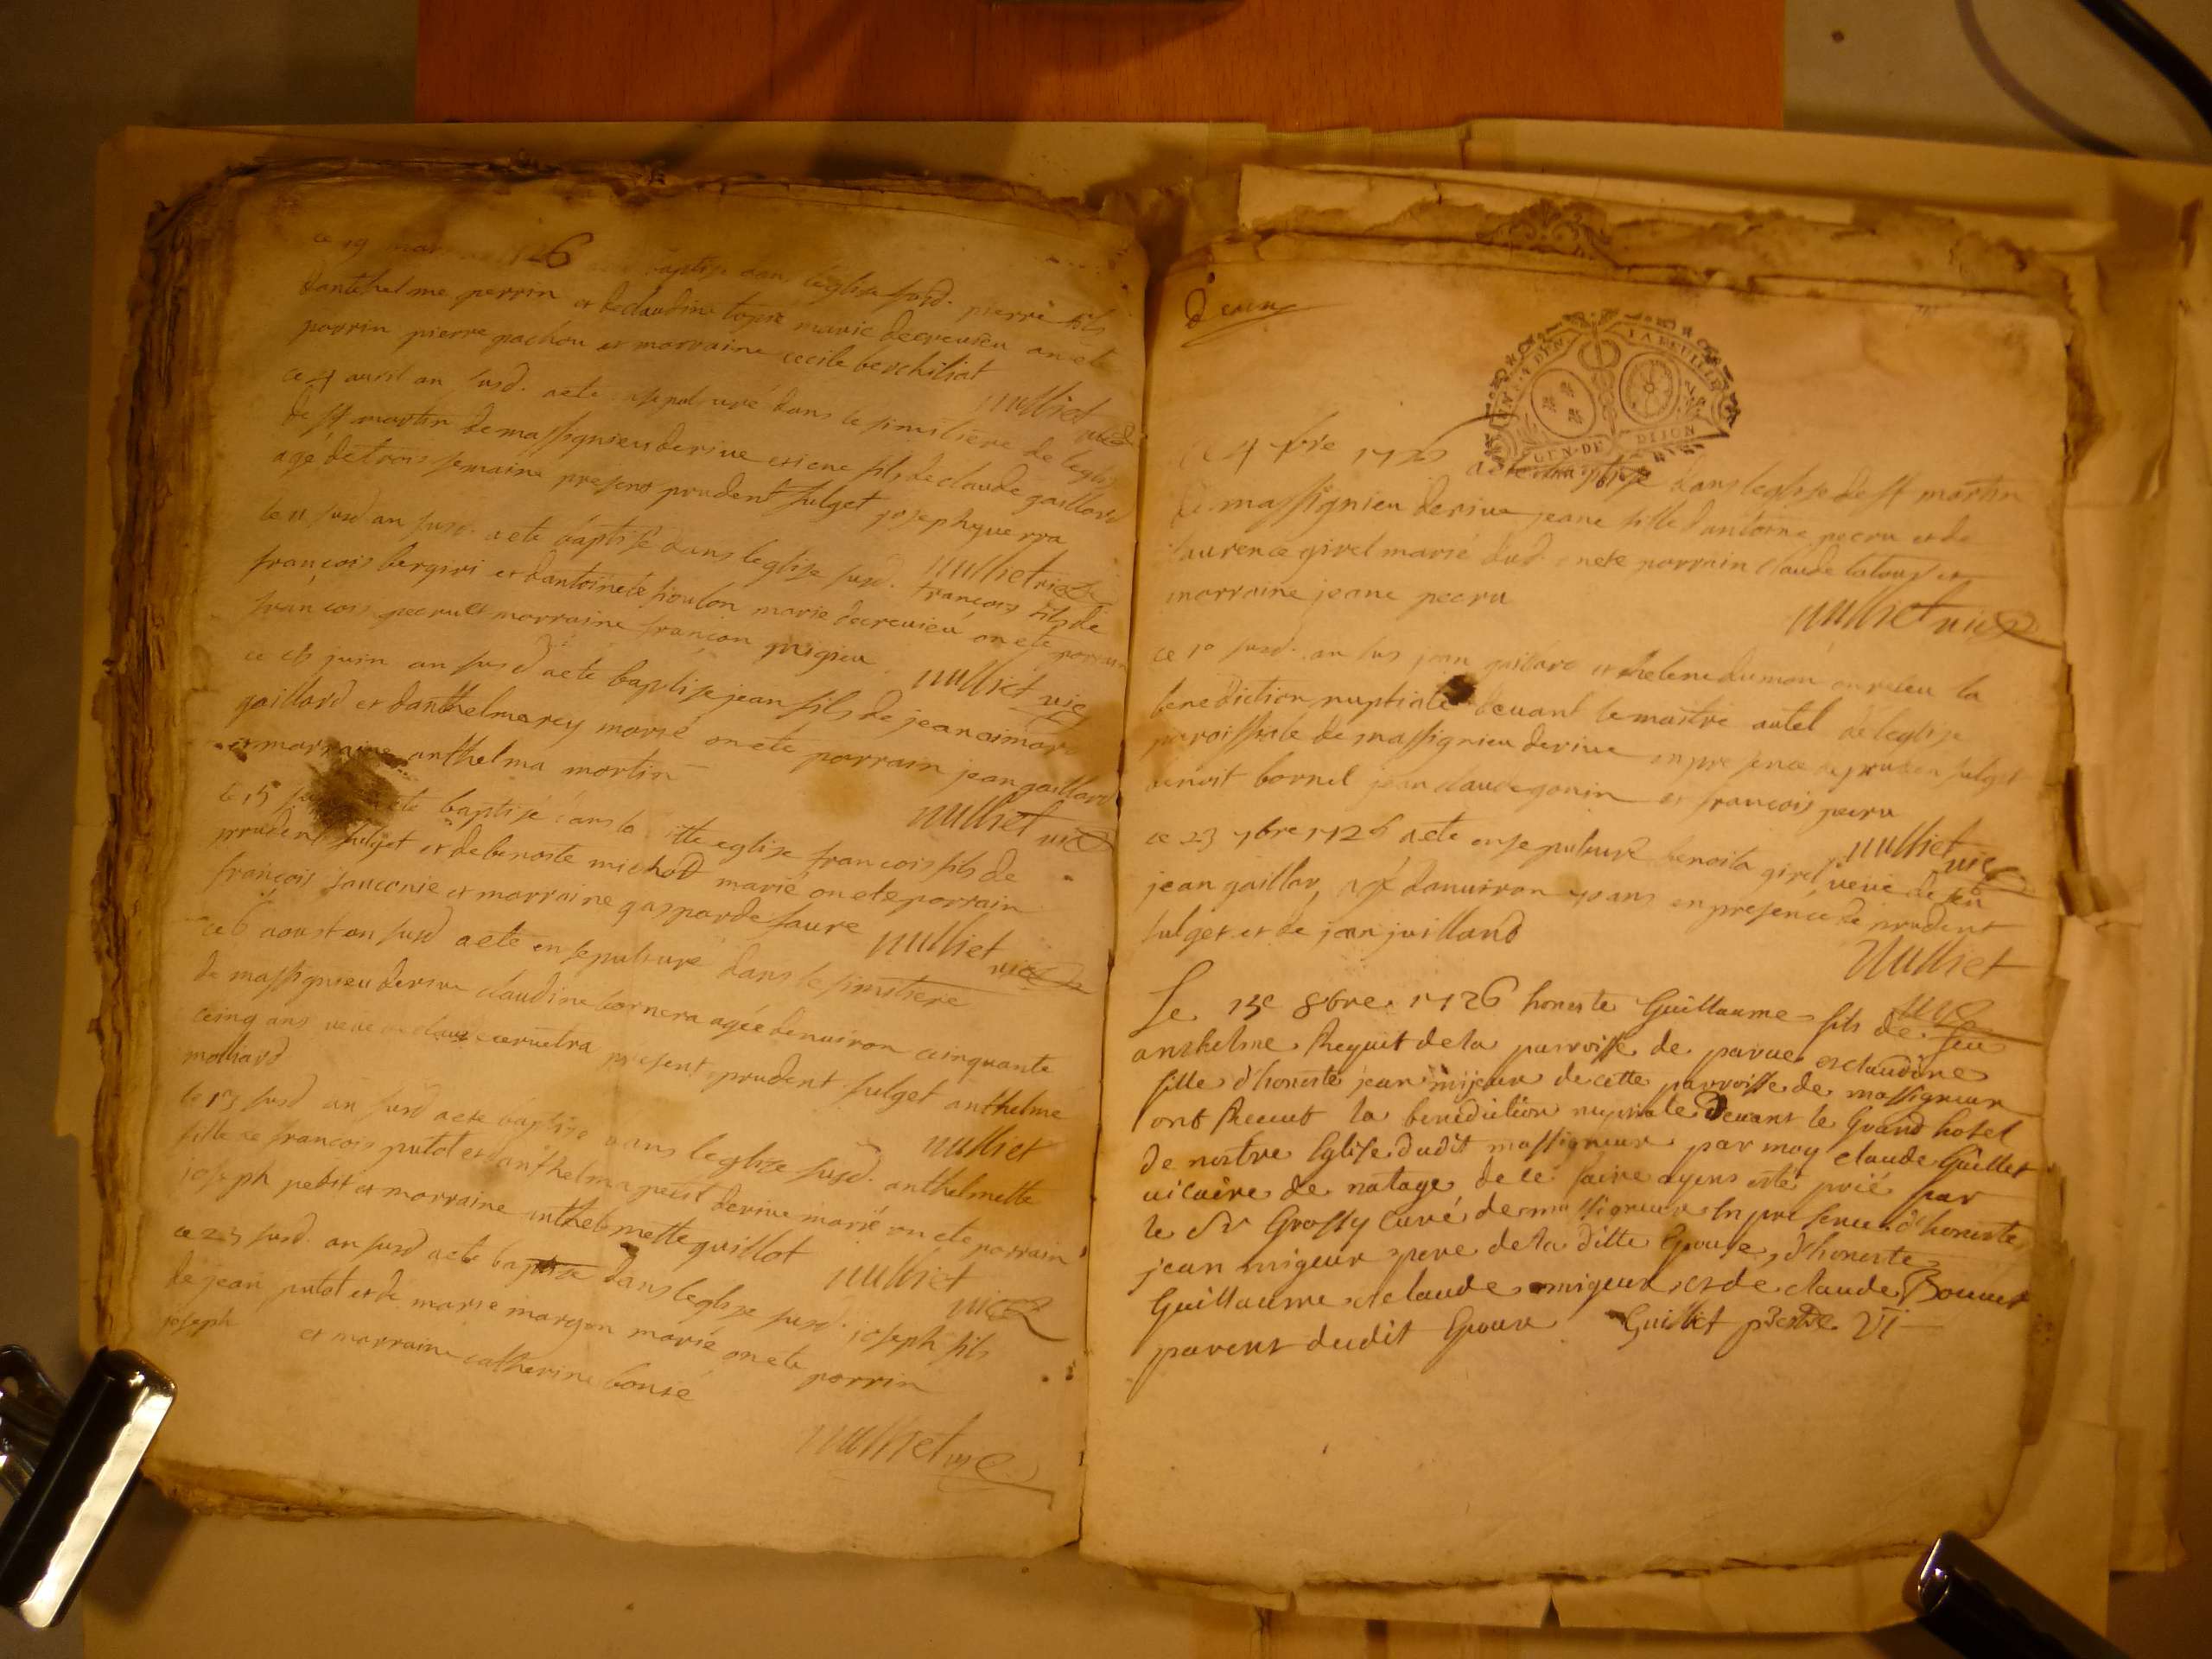 ce 19 mar 1726 baptise dans leglise susd. pierre fils
danthelme perrin et declaudine marie decreusieu on ete
parrin pierre pachou et marraine cecile berchiliat
nulliet vic
ce 4 auril an susd. aete dans le simitiere de leglise
de st martin de massignieu derive fils de claude gaillard
agé de trois semaine present prudent fulget joseph guerra
nulliet vic
le 11 susd an susd. aete baptisé dans leglise susd. francois fils de
francois bergiri et dantoinete houlon marie decreuieu on ete parrain
francois pecru et marraine francon migieu
nulliet vic
ce juin an susd aete baptise jean fils de jean aimard
gaillard et danthelma rey marié on ete parrain jean gaillard
et marraine anthelma martin
nulliet vic
le 15 aete baptisé dans la ditte eglise francois fils de
prudent fulget et de benoite michod marié on ete parrain
francois jauconie et marraine gasparde faure
nulliet vic
ce 6 aoust an susd aete ensepulturé dans le simitiere
de massignieu derive claudine bornera agée denuiron cinquante
cinq ans veue de claude present prudent fulget anthelme
molliard
nulliet
le 13 susd an susd aete baptise dans leglise susd. anthelmette
fille de francois putot et anthelma petit derive marié on ete parrain
joseph petit et marraine anthelmette guillot
nulliet
vic
ce 23 susd. an susd aete baptise dans leglise susd. joseph fils
de jean putot et de marie margon marié on ete parrin
joseph et marraine catherine bonsé
nulliet vic
GEN. DE DIJON
LA FEUILLE
ce 4 bre 1726 aete baptise dans leglise de st martin
de massignieu derive jeane fille dantoine pecru et de
laurence girel marié dud. on ete parrain claude latour et
marraine jeane pecru
nulliet vic
ce 10 susd. an sus jean gaillard et helene dumon on releu la
benediction nuptiale deuant le maitre autel de leglise
paroissiale de massignieu derive en presence de pruden fulget
benoit bornel jean claude gonin et francois pecru
nulliet vic
ce 23 7bre 1726 aete ensepulturé benoita girel veue de feu
jean gaillar, agé danuiron 70 ans en presence de prudent
fulget et de jean juilland
nulliet
vic
Le 15e 8bre 1726 honeste Guillaume fils de feu
anthelme Reguit de la parroisse de parues et claudine
fille d'honeste jean mijeur de cette parroisse de massigneux
ont Receut la benediction nuptiale Devant le Grand hotel
de nostre Eglise dudit massigneux par moy claude Guillet
uicaire de natage de ce faire ayens esté prié par
le Sr Grossy curé de massigneux En presence d'honeste
jean migeur pere de la ditte Epouse, d'honeste
Guillaume et claude migeur et de claude Bonnet
parent dudit Epoux Guillet prestre Vi